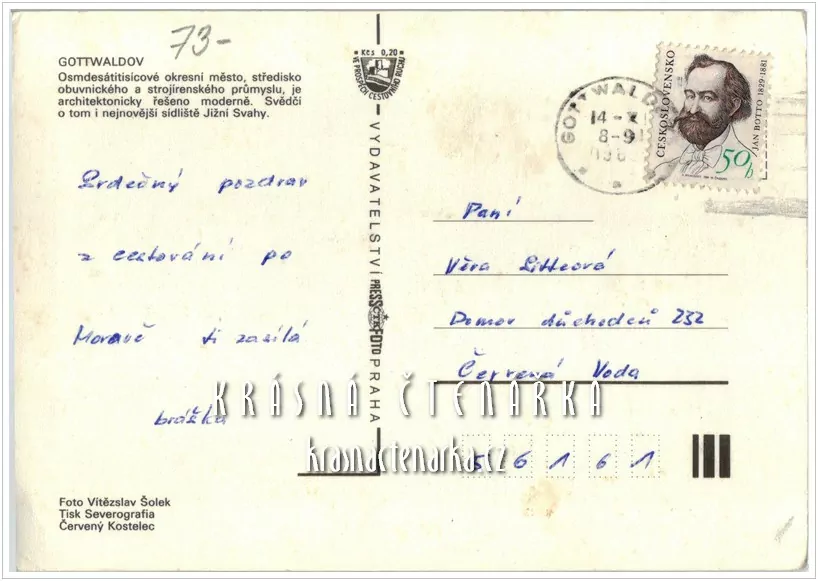 73-
GOTTWALDOV
Osmdesátitisícové okresní město, středisko
obuvnického a strojírenského průmyslu, je
architektonicky řešeno moderně. Svědčí
o tom i nejnovější sídliště Jižní Svahy.
Kčs 0,20
VE PROSPĚCH CESTOVNÍHO RUCHU
VYDAVATELSTVÍ PRESSFOTO PRAHA
ČTK
GOTTWALDO
14-X
8-9
198
ČESKOSLOVENSKO
JÁN BOTTO 1829-1881
50h
Srdečný pozdrav
z cestování po
Moravě ti zasílá
bráška
Paní
Věra Litteová
Domov důchodců 232
Červená Voda
56161
KRÁSNÁ ČTENÁRKA
krasnactenarka.cz
Foto Vítězslav Šolek
Tisk Severografia
Červený Kostelec